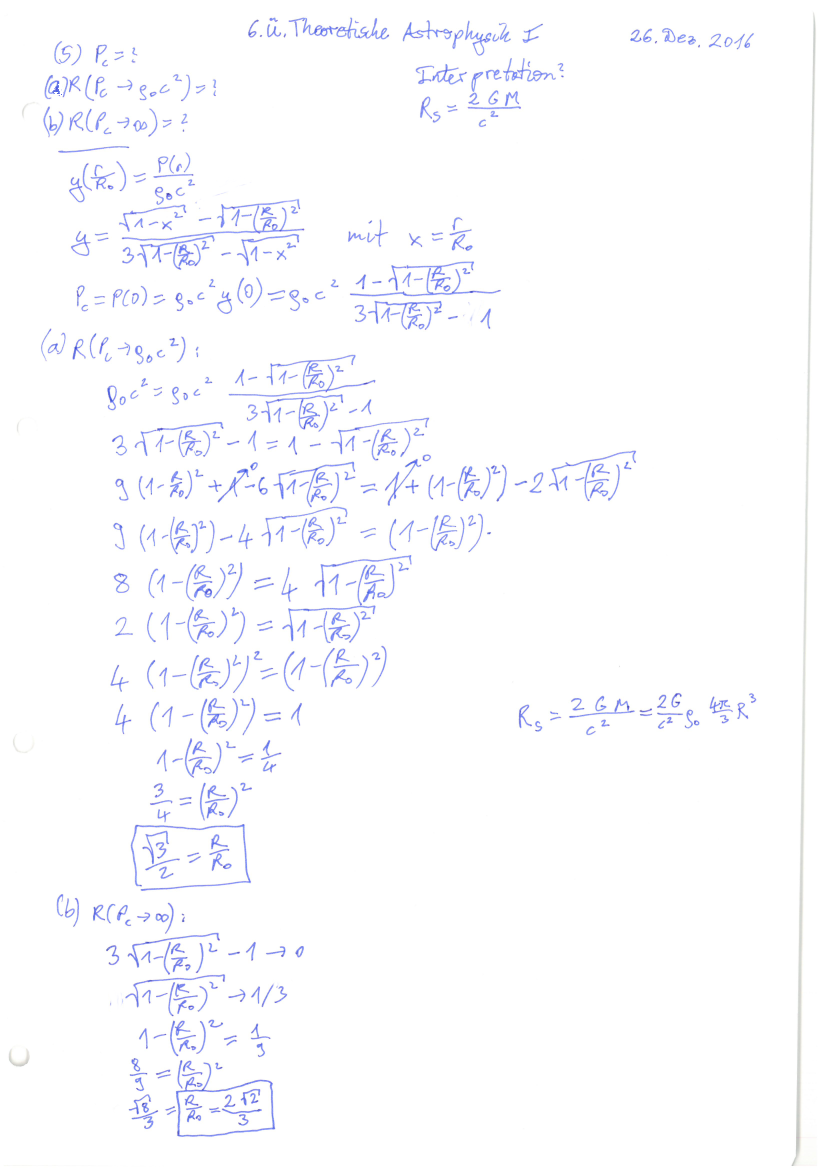 6. Ü. Theoretische Astrophysik I
26. Dez. 2016
(5) P_c = ?
(a) R(P_c → ρ₀c²) = ?
(b) R(P_c → ∞) = ?
Interpretation?
R_S = 2GM/c²
y(r/R₀) = P(r)/(ρ₀c²)
y = (√(1-x²) - √(1-(R/R₀)²))/(3√(1-(R/R₀)²) - √(1-x²)) mit x = r/R₀
P_c = P(0) = ρ₀c² y(0) = ρ₀c² (1-√(1-(R/R₀)²))/(3√(1-(R/R₀)²) - 1)
(a) R(P_c → ρ₀c²):
ρ₀c² = ρ₀c² (1-√(1-(R/R₀)²))/(3√(1-(R/R₀)²) - 1)
3√(1-(R/R₀)²) - 1 = 1 - √(1-(R/R₀)²)
9(1-R/R₀)² + 1↗0 - 6√(1-(R/R₀)²) = 1↗0 + (1-(R/R₀)²) - 2√(1-(R/R₀)²)
9(1-(R/R₀)²) - 4√(1-(R/R₀)²) = (1-(R/R₀)²).
8(1-(R/R₀)²) = 4√(1-(R/R₀)²)
2(1-(R/R₀)²) = √(1-(R/R₀)²)
4(1-(R/R₀)²)² = (1-(R/R₀)²)
4(1-(R/R₀)²) = 1
R_S = 2GM/c² = 2G/c² ρ₀ 4π/3 R³
1-(R/R₀)² = 1/4
3/4 = (R/R₀)²
√3/2 = R/R₀
(b) R(P_c → ∞):
3√(1-(R/R₀)²) - 1 → 0
√(1-(R/R₀)²) → 1/3
1-(R/R₀)² = 1/9
8/9 = (R/R₀)²
√8/3 = R/R₀ = 2√2/3